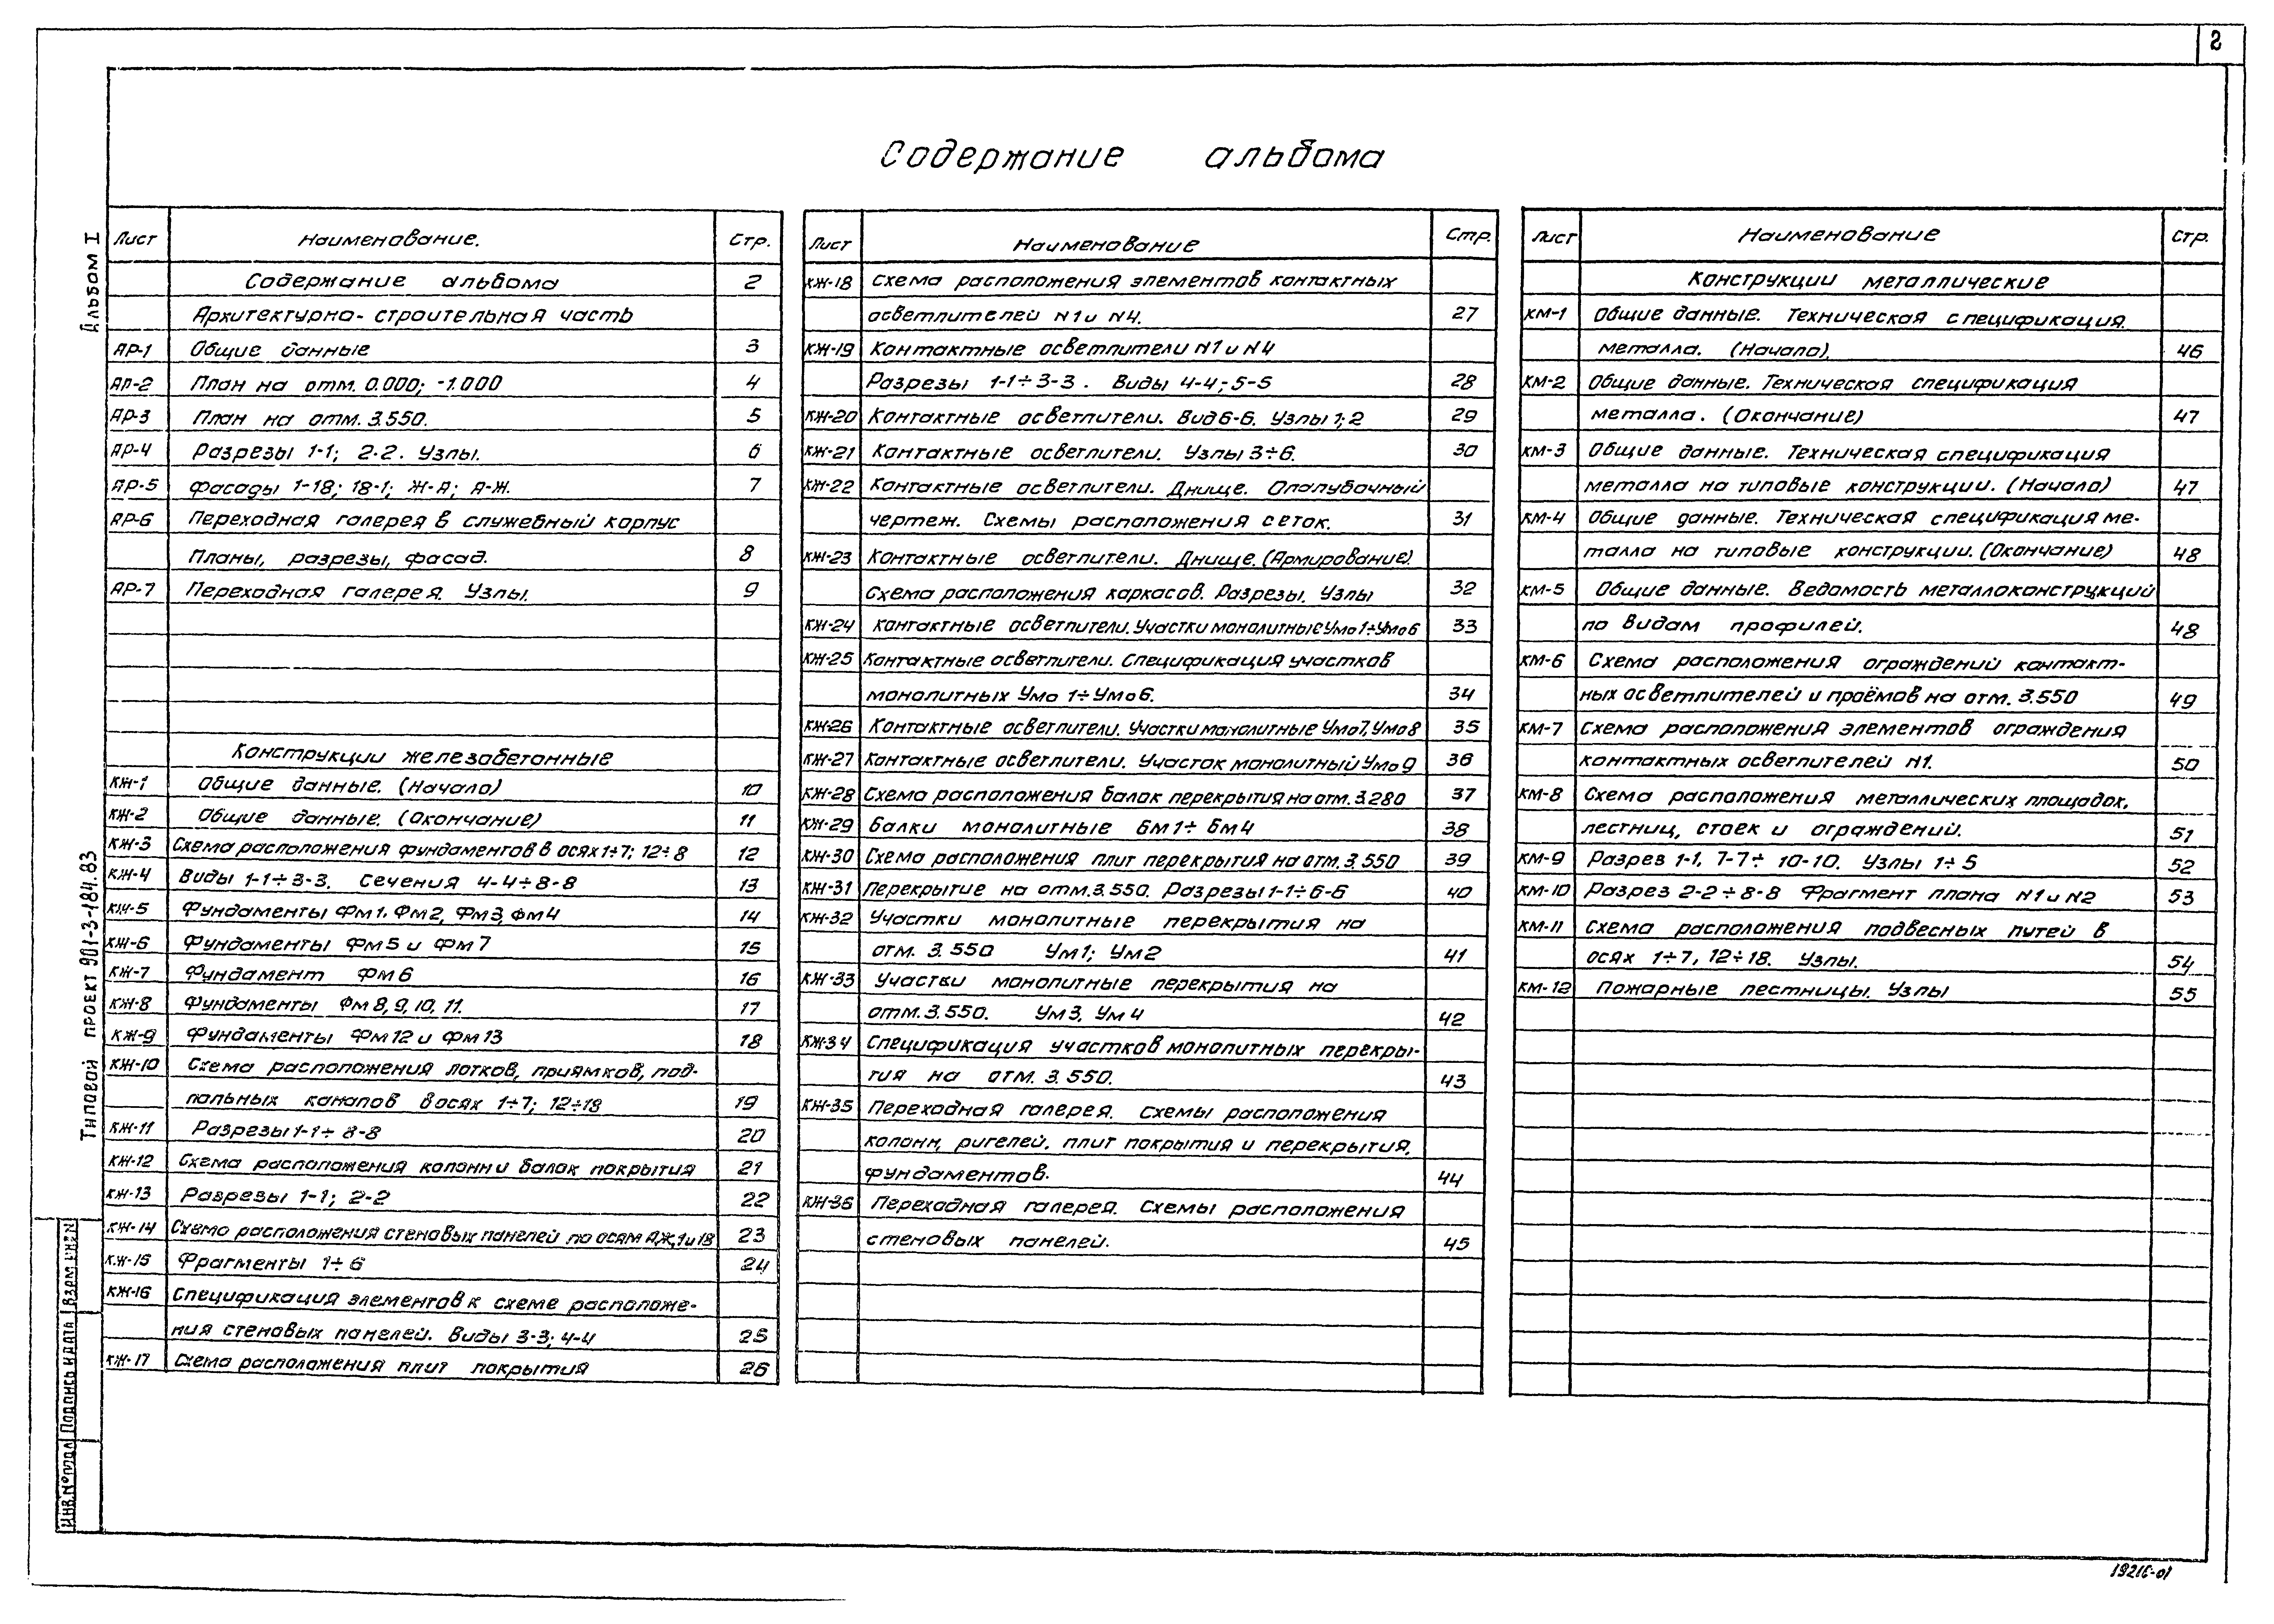 2
Содержание альбома
Альбом I
Типовой проект 901-3-184.83
Лист Наименование. Стр.
Содержание альбома 2
Архитектурно-строительная часть
АР-1 Общие данные 3
АР-2 План на отм. 0.000; -1.000 4
АР-3 План на отм. 3.550. 5
АР-4 Разрезы 1-1; 2-2. Узлы. 6
АР-5 Фасады 1-18; 18-1; Ж-А; А-Ж. 7
АР-6 Переходная галерея в служебный корпус
Планы, разрезы, фасад. 8
АР-7 Переходная галерея. Узлы. 9
Конструкции железобетонные
КЖ-1 Общие данные. (Начало) 10
КЖ-2 Общие данные. (Окончание) 11
КЖ-3 Схема расположения фундаментов в осях 1÷7; 12÷8 12
КЖ-4 Виды 1-1÷3-3. Сечения 4-4÷8-8 13
КЖ-5 Фундаменты Фм1, Фм2, Фм3, Фм4 14
КЖ-6 Фундаменты Фм5 и Фм7 15
КЖ-7 Фундамент Фм6 16
КЖ-8 Фундаменты Фм8, 9, 10, 11. 17
КЖ-9 Фундаменты Фм12 и Фм13 18
КЖ-10 Схема расположения лотков, приямков, под-
польных каналов в осях 1÷7; 12÷18 19
КЖ-11 Разрезы 1-1÷8-8 20
КЖ-12 Схема расположения колонн и балок покрытия 21
КЖ-13 Разрезы 1-1; 2-2 22
КЖ-14 Схема расположения стеновых панелей по осям А,Ж,1 и 18 23
КЖ-15 Фрагменты 1÷6 24
КЖ-16 Спецификация элементов к схеме расположе-
ния стеновых панелей. Виды 3-3; 4-4 25
КЖ-17 Схема расположения плит покрытия 26
Лист Наименование Стр.
КЖ-18 Схема расположения элементов контактных
осветлителей N1 и N4. 27
КЖ-19 Контактные осветлители N1 и N4
Разрезы 1-1÷3-3. Виды 4-4; 5-5 28
КЖ-20 Контактные осветлители. Вид 6-6. Узлы 1; 2 29
КЖ-21 Контактные осветлители. Узлы 3÷6. 30
КЖ-22 Контактные осветлители. Днище. Опалубочный
чертеж. Схемы расположения сеток. 31
КЖ-23 Контактные осветлители. Днище. (Армирование).
Схема расположения каркасов. Разрезы. Узлы 32
КЖ-24 Контактные осветлители. Участки монолитные Умо1÷Умо6 33
КЖ-25 Контактные осветлители. Спецификация участков
монолитных Умо 1÷Умо6. 34
КЖ-26 Контактные осветлители. Участки монолитные Умо7, Умо8 35
КЖ-27 Контактные осветлители. Участок монолитный Умо9 36
КЖ-28 Схема расположения балок перекрытия на отм. 3.280 37
КЖ-29 Балки монолитные Бм1÷Бм4 38
КЖ-30 Схема расположения плит перекрытия на отм. 3.550 39
КЖ-31 Перекрытие на отм. 3.550. Разрезы 1-1÷6-6 40
КЖ-32 Участки монолитные перекрытия на
отм. 3.550 Ум1; Ум2 41
КЖ-33 Участки монолитные перекрытия на
отм. 3.550. Ум3, Ум4 42
КЖ-34 Спецификация участков монолитных перекры-
тия на отм. 3.550. 43
КЖ-35 Переходная галерея. Схемы расположения
колонн, ригелей, плит покрытия и перекрытия,
фундаментов. 44
КЖ-36 Переходная галерея. Схемы расположения
стеновых панелей. 45
Лист Наименование Стр.
Конструкции металлические
КМ-1 Общие данные. Техническая спецификация
металла. (Начало). 46
КМ-2 Общие данные. Техническая спецификация
металла. (Окончание) 47
КМ-3 Общие данные. Техническая спецификация
металла на типовые конструкции. (Начало) 47
КМ-4 Общие данные. Техническая спецификация ме-
талла на типовые конструкции. (Окончание) 48
КМ-5 Общие данные. Ведомость металлоконструкций
по видам профилей. 48
КМ-6 Схема расположения ограждений контакт-
ных осветлителей и проёмов на отм. 3.550 49
КМ-7 Схема расположения элементов ограждения
контактных осветлителей N1. 50
КМ-8 Схема расположения металлических площадок,
лестниц, стоек и ограждений. 51
КМ-9 Разрез 1-1, 7-7÷10-10. Узлы 1÷5 52
КМ-10 Разрез 2-2÷8-8 Фрагмент плана N1 и N2 53
КМ-11 Схема расположения подвесных путей в
осях 1÷7, 12÷18. Узлы. 54
КМ-12 Пожарные лестницы. Узлы 55
Инв. № подл Подпись и дата Взам инв N
19216-01